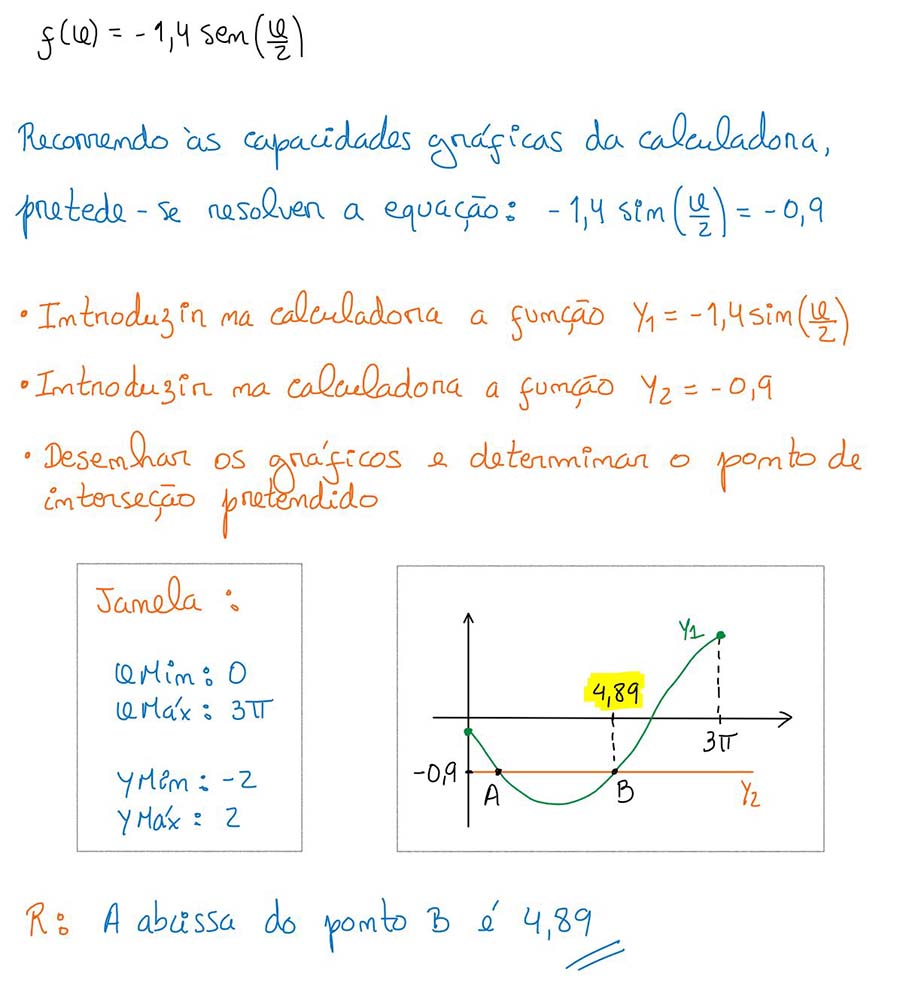 f(φ) = -1,4 sen(φ/2)
Recorrendo às capacidades gráficas da calculadora,
pretede-se resolver a equação: -1,4 sin(φ/2) = -0,9
• Introduzir na calculadora a função Y1 = -1,4 sin(φ/2)
• Introduzir na calculadora a função Y2 = -0,9
• Desenhar os gráficos e determinar o ponto de
interseção pretendido
Janela :
φMin: 0
φMáx: 3π
YMin: -2
YMáx: 2
Y1
4,89
3π
-0,9
A
B
Y2
R: A abcissa do ponto B é 4,89